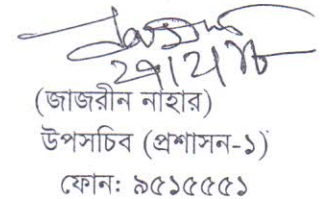 (জাজরীন নাহার)
উপসচিব (প্রশাসন-১)
ফোন: ৯৫১৫৫৫১